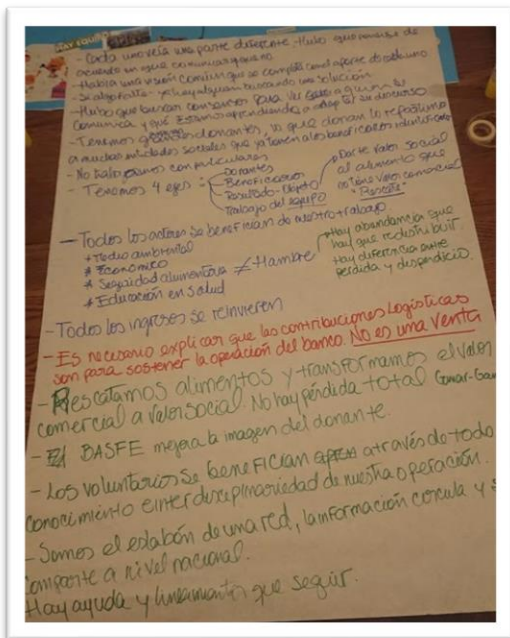 HAY EQUIPO
- Cada uno veía una parte diferente. Hubo que ponerse de
acuerdo en que comunicar y que no.
- Había una visión común que se completa con el aporte de cada uno
- Si algo falta - ya hay alguien buscando una solución
- Hubo que buscar consensos para ver a quien se
comunica y qué. Estamos aprendiendo a adaptar ese discurso
- Tenemos grandes donantes, lo que donan lo repartimos
a muchas entidades sociales que ya tienen a los beneficiarios identificados
- No trabajamos con particulares
- Tenemos 4 ejes:
Donantes
Beneficiarios
Resultado-Objeto
Trabajo del equipo
Darle valor social
al alimento que
no tiene valor comercial
"Rescate"
- Todos los actores se benefician de nuestro trabajo
* Medio ambiental
* Económico
* Seguridad alimentaria ≠ Hambre
* Educación en Salud
Hay abundancia que
hay que redistribuir.
Hay diferencia entre
pérdida y desperdicio.
- Todos los ingresos se reinvierten
- Es necesario explicar que las contribuciones logísticas
son para sostener la operación del banco. No es una venta
- Rescatamos alimentos y transformamos el valor
comercial a valor social. No hay pérdida total Ganar-Gan
- El BASFE mejora la imagen del donante.
- Los voluntarios se benefician a través de todo
conocimiento e interdisciplinariedad de nuestra operación.
- Somos el eslabón de una red, la información circula y s
comparte a nivel nacional.
Hay ayuda y lineamientos que seguir.